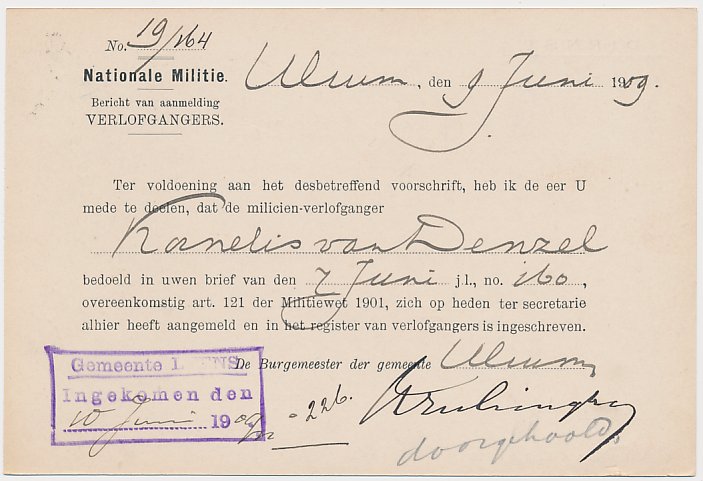 No. 19/164
Nationale Militie.
Ulrum, den 9 Juni 1909.
Bericht van aanmelding
VERLOFGANGERS.
Ter voldoening aan het desbetreffend voorschrift, heb ik de eer U
mede te deelen, dat de milicien-verlofganger
Kornelis van Denzel
bedoeld in uwen brief van den 7 Juni j.l., no. 160,
overeenkomstig art. 121 der Militiewet 1901, zich op heden ter secretarie
alhier heeft aangemeld en in het register van verlofgangers is ingeschreven.
De Burgemeester der gemeente Ulrum,
Gemeente
Ingekomen den
10 Juni 1909
226.